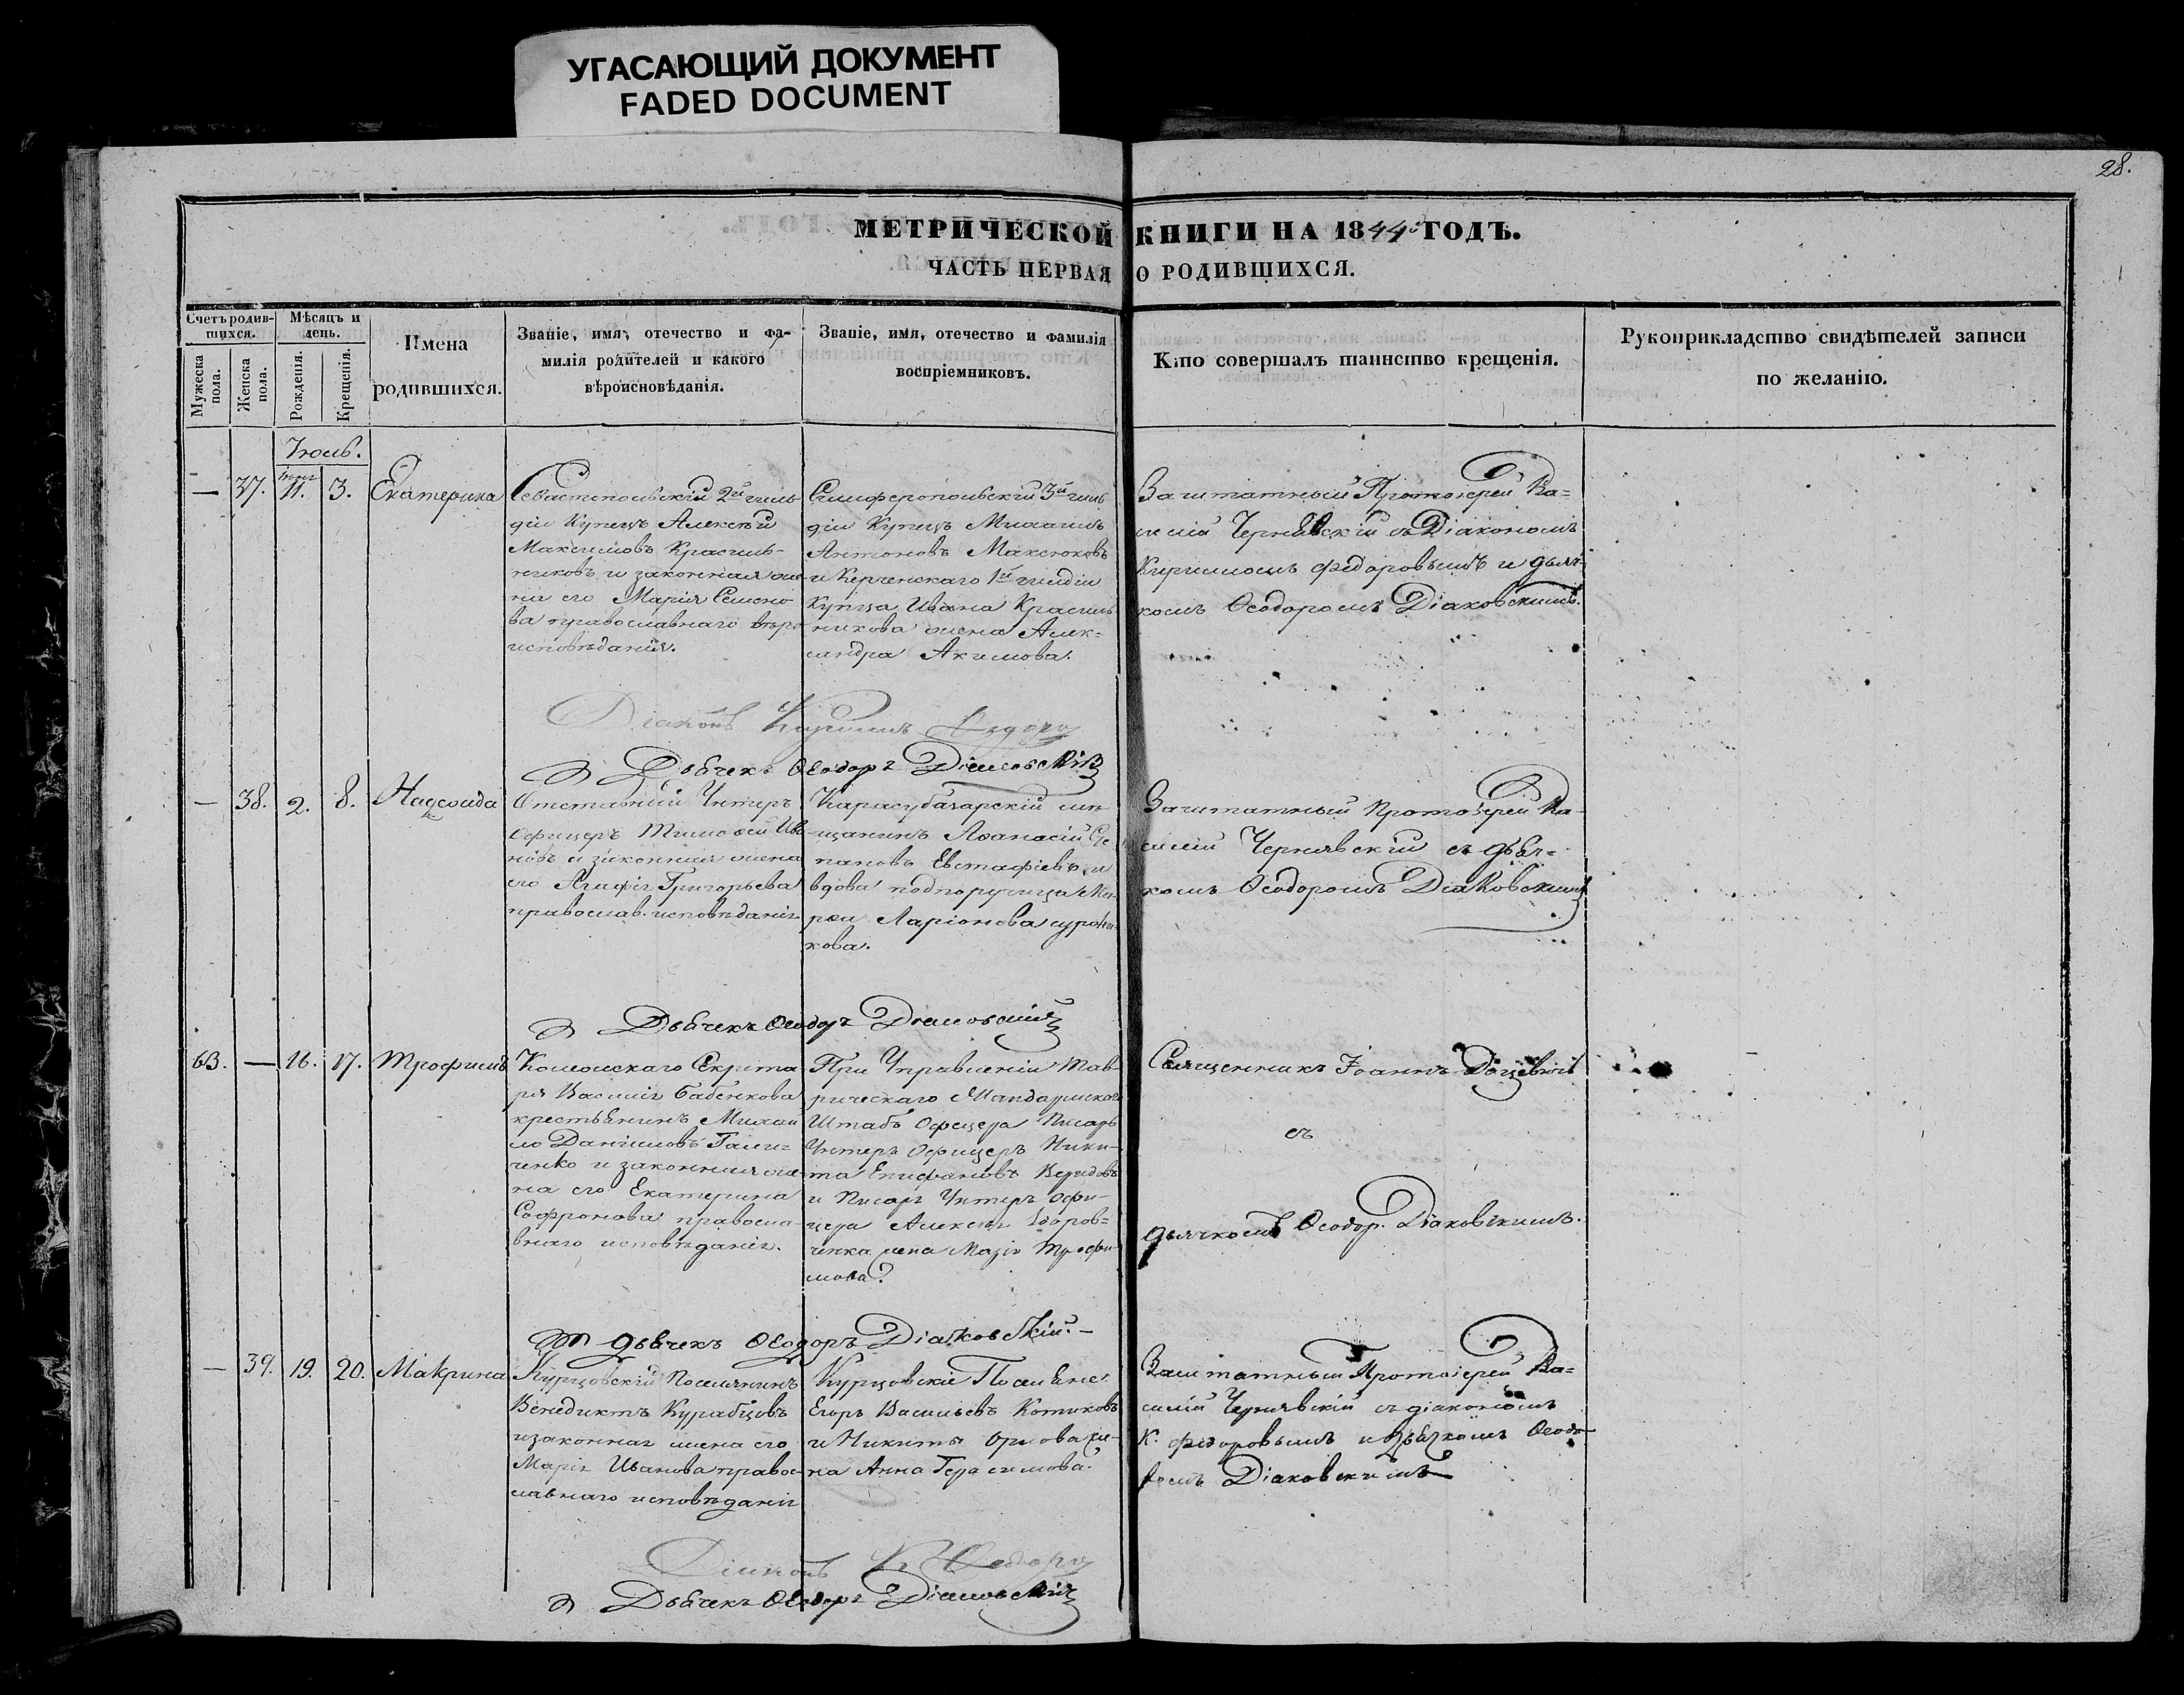 УГАСАЮЩИЙ ДОКУМЕНТ
FADED DOCUMENT
28.
МЕТРИЧЕСКОЙ КНИГИ НА 1844 ГОДЪ.
ЧАСТЬ ПЕРВАЯ О РОДИВШИХСЯ.
Счетъ родив-
шихся.
Мужеска
пола.
Женска
пола.
Мѣсяцъ и
день.
Рожденія.
Крещенія.
Имена
родившихся.
Званіе, имя, отечество и фа-
милія родителей и какого
вѣроисновѣданія.
Званіе, имя, отечество и фамилія
воспріемниковъ.
Кто совершалъ таинство крещенія.
Рукоприкладство свидѣтелей записи
по желанію.
Іюль.
— 37. 11. 3. Екатерина
Севастопольскій 2й гиль
діи Купецъ Алексѣй
Максимовъ Красиль-
никовъ и законная же
на его Марія Семено
ва православнаго вѣро
исповѣданія.
Симферопольскій 3й гиль
діи Купецъ Михаилъ
Антоновъ Максюковъ
и Керченскаго 1й гильдіи
Купца Ивана Красиль
никова жена Алек=
сандра Акимова.
Заштатный Протоіерей Ва=
силій Чернявскій съ Діакономъ
Кирилломъ Федоровымъ и дьяч
комъ Ѳеодоромъ Діаковскимъ.
Діаконъ Кириллъ
Дьячекъ Ѳеодоръ Діаковскій
— 38. 2. 8. Надежда
Отставный Унтеръ
Офицеръ Тимоѳей Ива
новъ и законная жена
его Агафія Григорьева
православ. исповѣданія
Карасубазарскій мѣ
щанинъ Аѳанасій Сте
пановъ Евстафіевъ и
вдова подпоручица Ма
рѳа Ларіонова
кова.
Заштатный Протоіерей Ва-
силій Чернявскій съ дьяч=
комъ Ѳеодоромъ Діаковскимъ
Дьячекъ Ѳеодоръ Діаковскій
63. — 16. 17. Трофимъ
Коллежскаго Секрета
ря Василія Бабенкова
крестьянинъ Михаи
ло Даниловъ
ченко и законная же
на его Екатерина
Софронова правосла
внаго исповѣданія.
При Управленіи Тав-
рическаго Жандармскаго
Штабъ Офицера Писарь
Унтеръ Офицеръ Ники-
та Епифановъ
и Писаря Унтеръ Офи-
цера Алексѣя
ченка жена Марія Трофи-
мова.
Священникъ Іоаннъ
съ
дьячкомъ Ѳеодор. Діаковскимъ.
дьячекъ Ѳеодоръ Діаковскій.—
— 39. 19. 20. Макрина
Курцовскій Поселянинъ
Венедиктъ Курабцовъ
и законная жена его
Марія Иванова правос-
лавнаго исповѣданія
Курцовскіе Поселяне
Егоръ Васильевъ Котиковъ
и Никиты Орлова же-
на Анна Герасимова.
Заштатный Протоіерей Ва=
силій Чернявскій съ діакономъ
К. Федоровымъ и дьячкомъ Ѳеодо
ромъ Діаковскимъ
Діаконъ К.
Дьячекъ Ѳеодоръ Діаковскій